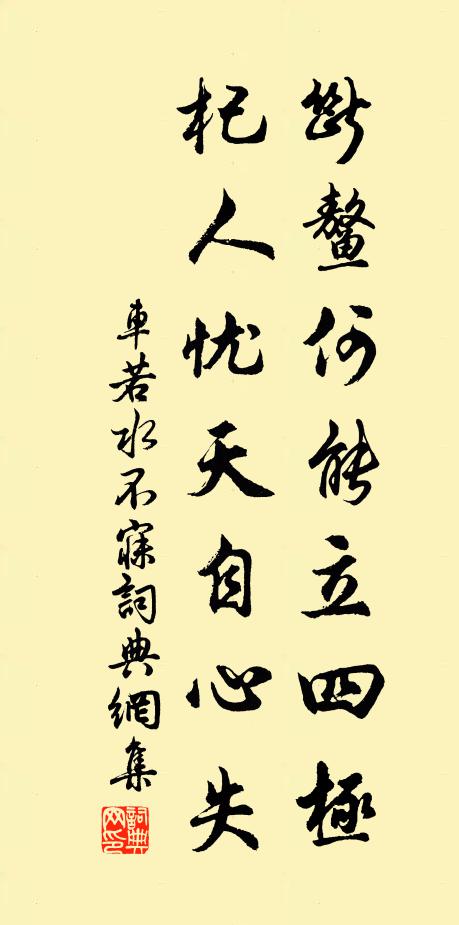 斷鼇何能立四極
杞人忧天自心失
車若水不寐詞典網集
詞典网印